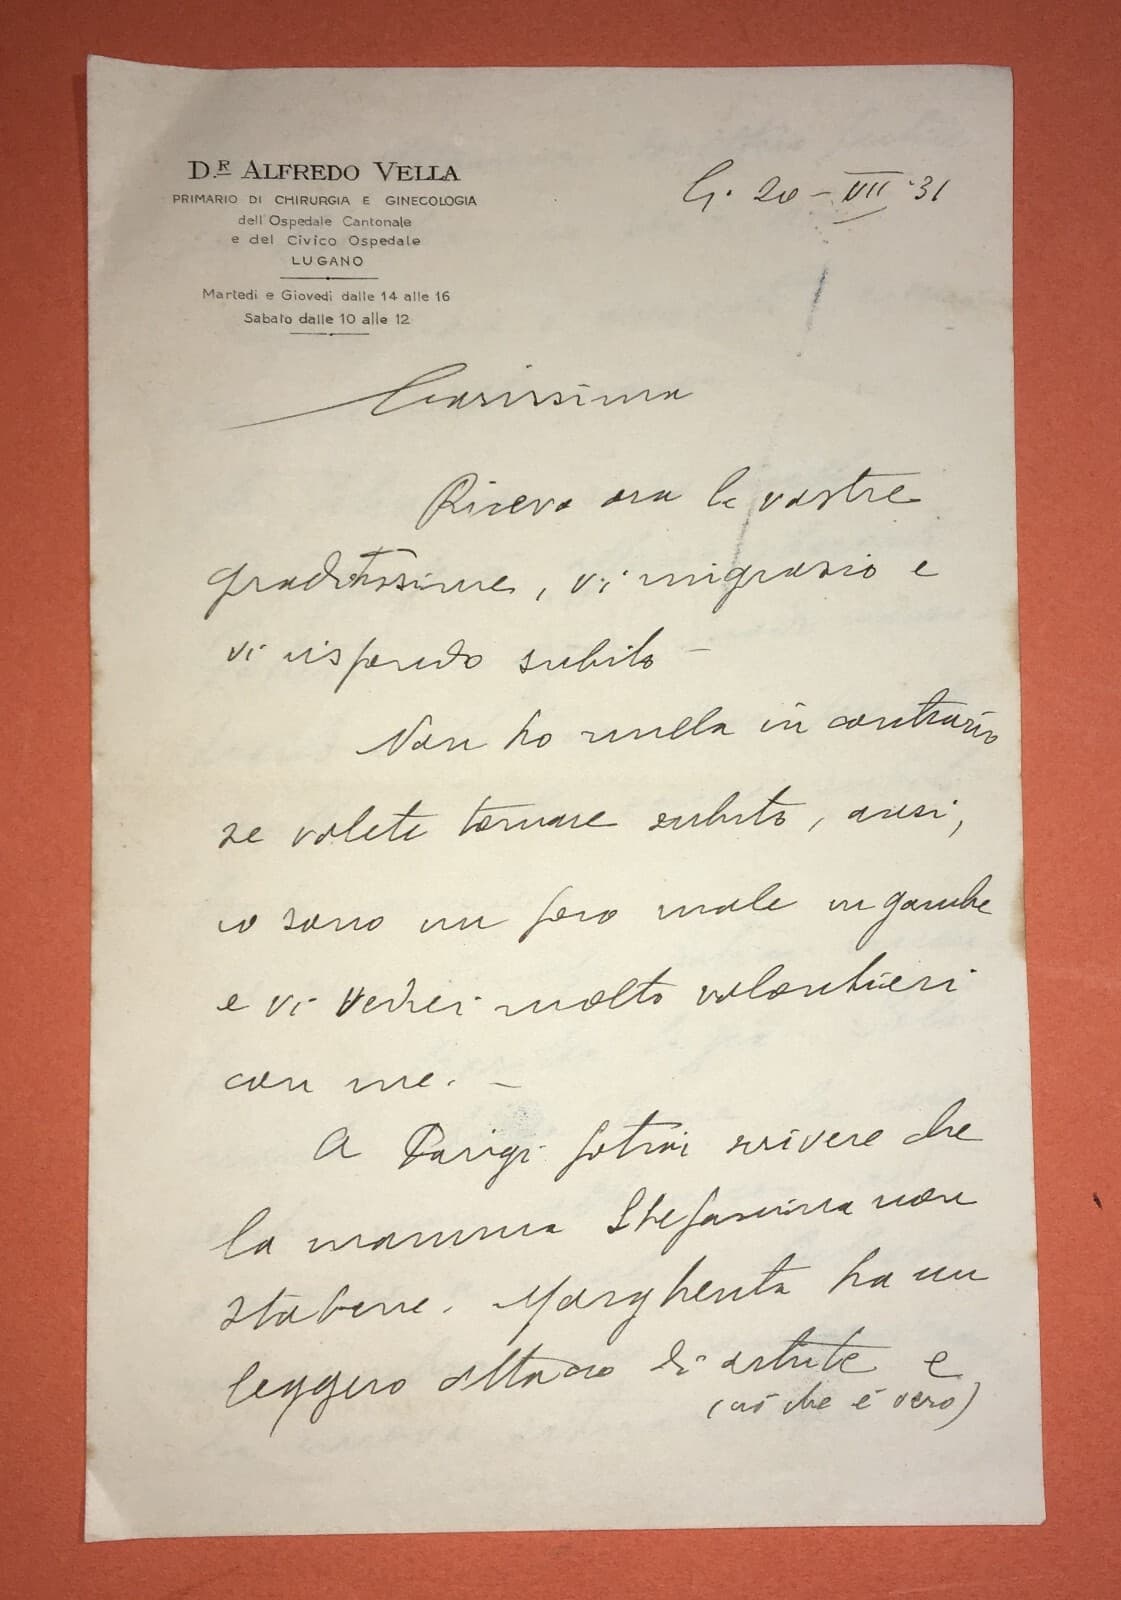 Dr. ALFREDO VELLA
PRIMARIO DI CHIRURGIA E GINECOLOGIA
dell'Ospedale Cantonale
e del Civico Ospedale
LUGANO
Martedi e Giovedi dalle 14 alle 16
Sabato dalle 10 alle 12
20 - VII '31
Carissima
Ricevo ora le vostre
graditissime, vi ringrazio e
vi rispondo subito -
Non ho nulla in contrario
se volete tornare subito, anzi,
io sono un poco male in gambe
e vi vedrei molto volontieri
con me. -
A Parigi potrai scrivere che
la mamma Stefanina non
sta bene. Margherita ha un
leggero attacco di artrite e
(ciò che è vero)